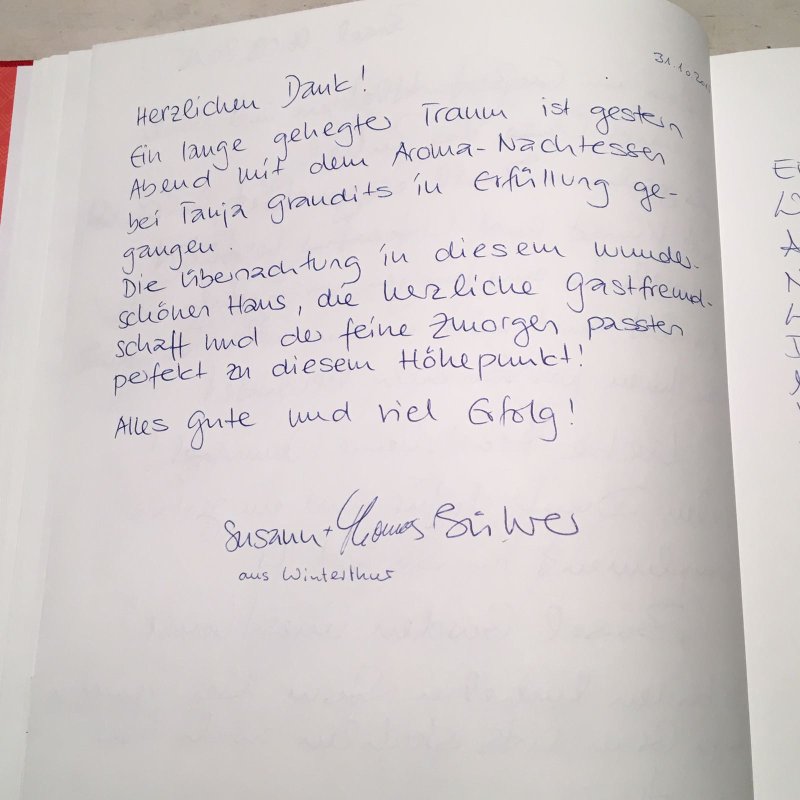 31.10.20
Herzlichen Dank!
Ein lange gehegter Traum ist gestern
Abend mit dem Aroma-Nachtessen
bei Tanja Grandits in Erfüllung ge-
gangen.
Die Übernachtung in diesem wunder-
schönen Haus, die herzliche Gastfreund-
schaft und der feine Zmorgen passten
perfekt zu diesem Höhepunkt!
Alles Gute und viel Erfolg!
Susann + Thomas
aus Winterthur